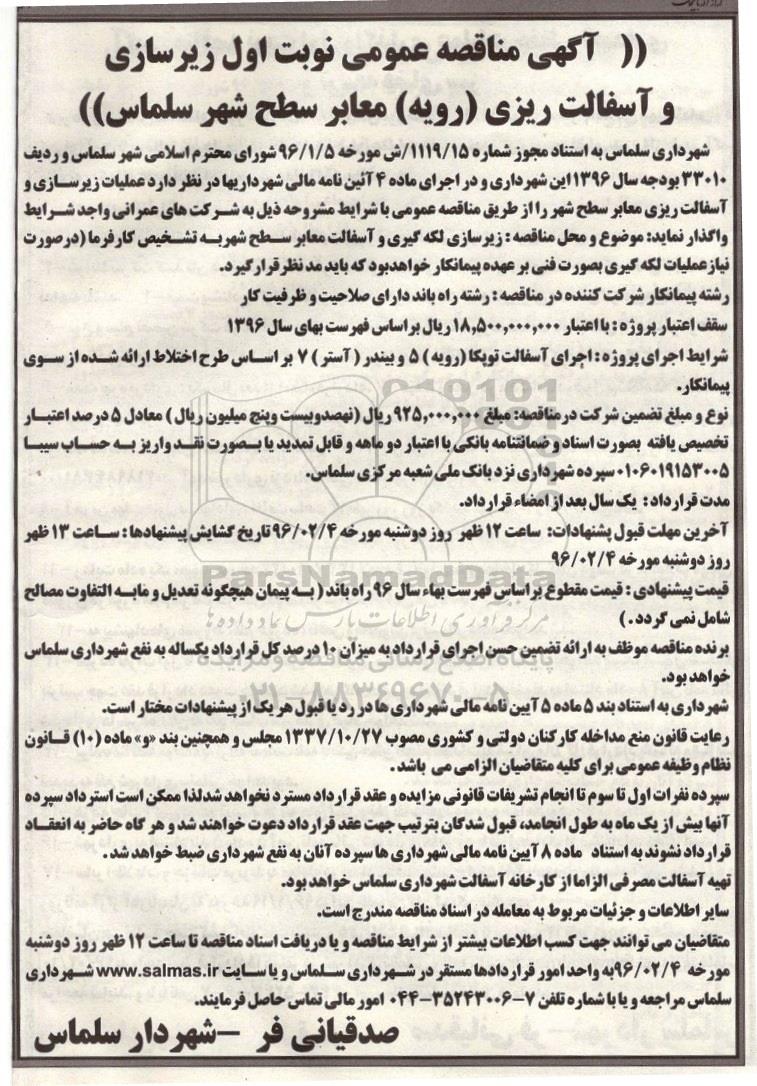 (( آگهی مناقصه عمومی نوبت اول زیرسازی
و آسفالت ریزی (رویه) معابر سطح شهر سلماس))
شهرداری سلماس به استناد مجوز شماره ۱۱۱۹/۱۵/ش مورخه ۹۶/۱/۵ شورای محترم اسلامی شهر سلماس و ردیف
۳۳۰۱۰ بودجه سال ۱۳۹۶ این شهرداری و در اجرای ماده ۴ آئین نامه مالی شهرداریها در نظر دارد عملیات زیرسازی و
آسفالت ریزی معابر سطح شهر را از طریق مناقصه عمومی با شرایط مشروحه ذیل به شرکت های عمرانی واجد شرایط
واگذار نماید: موضوع و محل مناقصه : زیرسازی لکه گیری و آسفالت معابر سطح شهربه تشخیص کارفرما (درصورت
نیازعملیات لکه گیری بصورت فنی بر عهده پیمانکار خواهدبود که باید مد نظر قرار گیرد.
رشته پیمانکار شرکت کننده در مناقصه : رشته راه باند دارای صلاحیت و ظرفیت کار
سقف اعتبار پروژه : با اعتبار ۱۸,۵۰۰,۰۰۰,۰۰۰ ریال بر اساس فهرست بهای سال ۱۳۹۶
شرایط اجرای پروژه : اجرای آسفالت توپکا (رویه) ۵ و بیندر ( آستر ) ۷ بر اساس طرح اختلاط ارائه شده از سوی
پیمانکار.
نوع و مبلغ تضمین شرکت در مناقصه: مبلغ ۹۲۵,۰۰۰,۰۰۰ ریال (نهصدوبیست وپنج میلیون ریال ) معادل ۵ درصد اعتبار
تخصیص یافته بصورت اسناد و ضمانتنامه بانکی با اعتبار دو ماهه و قابل تمدید یا بصورت نقد واریز به حساب سیبا
۰۱۰۶۰۱۹۱۵۳۰۰۵ سپرده شهرداری نزد بانک ملی شعبه مرکزی سلماس.
مدت قرارداد : یک سال بعد از امضاء قرارداد.
آخرین مهلت قبول پشنهادات: ساعت ۱۲ ظهر روز دوشنبه مورخه ۹۶/۰۲/۴ تاریخ گشایش پیشنهادها : ساعت ۱۳ ظهر
روز دوشنبه مورخه ۹۶/۰۲/۴
قیمت پیشنهادی : قیمت مقطوع بر اساس فهرست بهاء سال ۹۶ راه باند ( به پیمان هیچگونه تعدیل و مابه التفاوت مصالح
شامل نمی گردد .)
برنده مناقصه موظف به ارائه تضمین حسن اجرای قرارداد به میزان ۱۰ درصد کل قرارداد یکساله به نفع شهرداری سلماس
خواهد بود.
شهرداری به استناد بند ۵ ماده ۵ آیین نامه مالی شهرداری ها در رد یا قبول هر یک از پیشنهادات مختار است.
رعایت قانون منع مداخله کارکنان دولتی و کشوری مصوب ۱۳۳۷/۱۰/۲۷ مجلس و همچنین بند «و» ماده (۱۰) قانون
نظام وظیفه عمومی برای کلیه متقاضیان الزامی می باشد .
سپرده نفرات اول تا سوم تا انجام تشریفات قانونی مزایده و عقد قرارداد مسترد نخواهد شدلذا ممکن است استرداد سپرده
آنها بیش از یک ماه به طول انجامد، قبول شدگان بترتیب جهت عقد قرارداد دعوت خواهند شد و هر گاه حاضر به انعقاد
قرارداد نشوند به استناد ماده ۸ آیین نامه مالی شهرداری ها سپرده آنان به نفع شهرداری ضبط خواهد شد .
تهیه آسفالت مصرفی الزاما از کارخانه آسفالت شهرداری سلماس خواهد بود.
سایر اطلاعات و جزئیات مربوط به معامله در اسناد مناقصه مندرج است.
متقاضیان می توانند جهت کسب اطلاعات بیشتر از شرایط مناقصه و یا دریافت اسناد مناقصه تا ساعت ۱۲ ظهر روز دوشنبه
مورخه ۹۶/۰۲/۴به واحد امور قراردادها مستقر در شهرداری سلماس و یا سایت www.salmas.ir شهرداری
سلماس مراجعه و یا با شماره تلفن ۷-۳۵۲۴۳۰۰۶-۰۴۴ امور مالی تماس حاصل فرمایند.
صدقیانی فر –شهردار سلماس
ParsNamadData
مرکز فرآوری اطلاعات پارس نماد داده ها
پایگاه اطلاع رسانی مناقصه و مزایده
۰۲۱-۸۸۳۴۹۶۷۰-۵